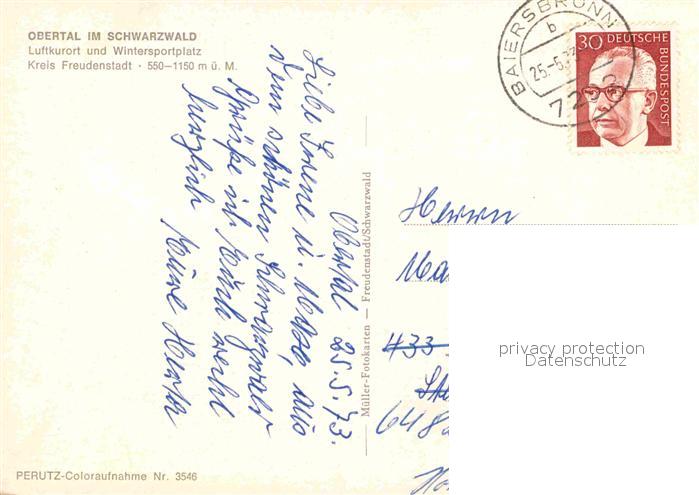 OBERTAL IM SCHWARZWALD
Luftkurort und Wintersportplatz
Kreis Freudenstadt · 550–1150 m ü. M.
BAIERSBRONN
b
25.-5.73
729
30 DEUTSCHE
BUNDESPOST
Obertal 25.5.73.
Liebe Irene u. Mutter, aus
dem schönen Schwarzwald
grüße ich Euch recht
herzlich Eure Herta
Müller-Fotokarten — Freudenstadt/Schwarzwald
Herrn
Ma
433
648
privacy protection
Datenschutz
PERUTZ-Coloraufnahme Nr. 3546